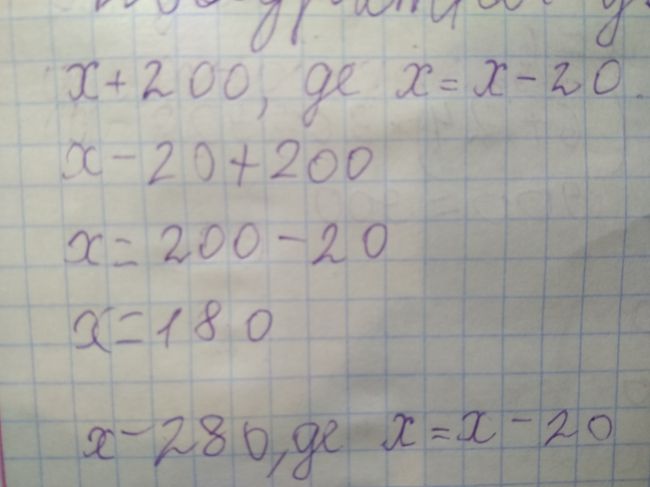 x + 200, де x = x - 20.
x - 20 + 200
x = 200 - 20
x = 180
x - 280, де x = x - 20